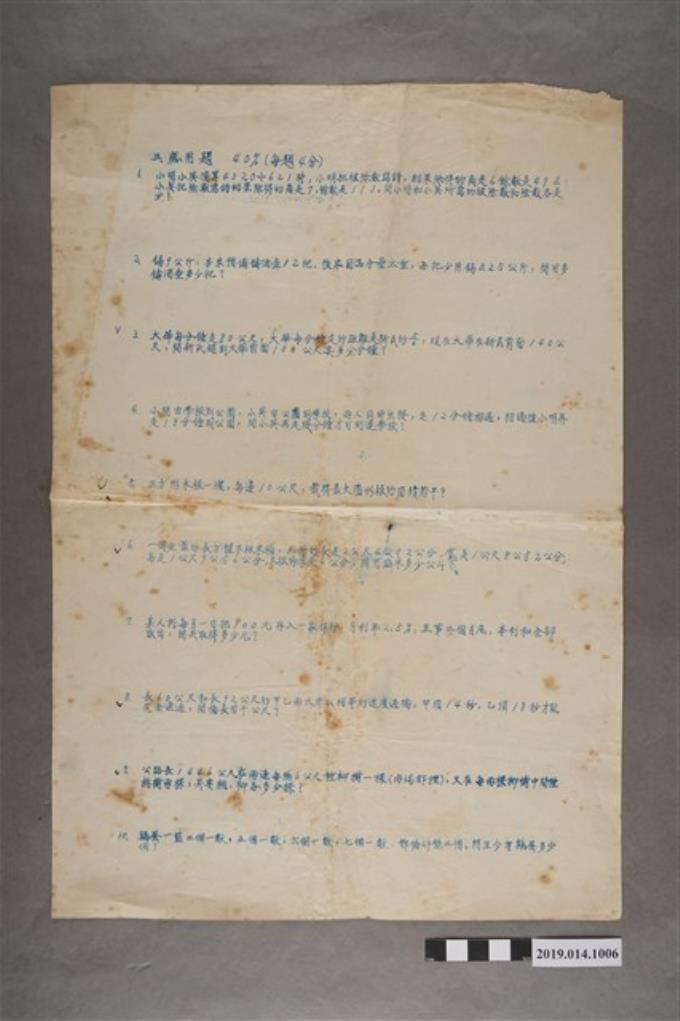 三應用題 40%(每題4分)
1. 小明小英演算4320÷621時,小明把被除數寫錯,結果除得的商是6餘數是496.
小英把除數寫錯結果除得的商是7,餘數是111,問小明和小英所寫的被除數和除數各是
少?
2. 錫9公斤,本來預備鑄酒壺12把,後來因為分量太重,每把少用錫0.25公斤,問可多
鑄酒壺多少把?
3. 大華每分鐘走80公尺,大華每分鐘走的距離是新民的,現在大華在新民前面140公
尺,問新民趕到大華前面100公尺要多少分鐘?
4. 小明由學校到公園,小英由公園到學校,兩人同時出發,走12分鐘相遇,相遇後小明再
走18分鐘到公園,問小英再走幾分鐘才可到達學校?
5. 正方形木板一塊,每邊10公尺,截得最大圓形板的面積若干?
6. 一個無蓋的長方體木板米桶,外面的長是2公尺6公寸2公分,寬是1公尺8公寸2公分,
高是1公尺9公寸6公分,木板的厚是6公分,問可藏米多少公斗?
7. 某人於每月一日把900元存入一家銀行,月利率2.5%,至第三個月底,本利和全部
取出,問共取得多少元?
8. 長60公尺和長92公尺的甲乙兩火車以相等的速度過橋,甲須14秒,乙須18秒才能
完全通過,問橋長若干公尺?
9. 公路長1666公尺在兩邊每隔公尺種柳樹一棵(兩端都種),又在每兩棵柳樹中間種
桃樹兩棵,共要桃、柳各多少棵?
10. 鷄蛋一籃三個一數,五個一數,六個一數,七個一數,都恰好餘個,問至少有鷄蛋多少
個?
2019.014.1006